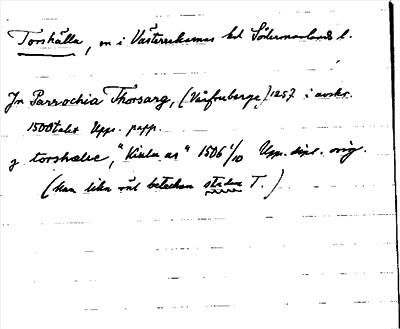 Torshälla, sn i Västerrekarnes hd Södermanlands l.
Jn Parrochia Thorsarg, (Vårfruberga) 1257 i avskr.
1500talet Upps. papp.
j torshælæ, "Kiula as" 1506 1/10 Upp. dipl. orig.
(kan lika väl beteckna staden T.)